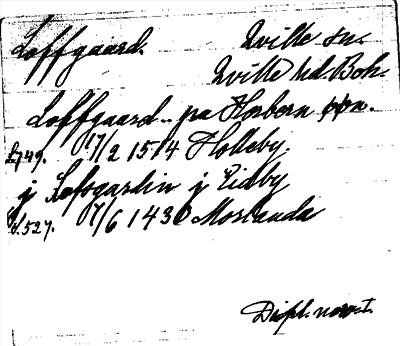 Loffgaard. Qville sn.
Qville hd. Boh.
Loffgaard .. pa Horbern øøn.
I, 749. 17/2 1514 Holleby.
j Lofsgardin j Eidby
V. 527. 17/6 1430 Moslanda
Dipl. norv. I.